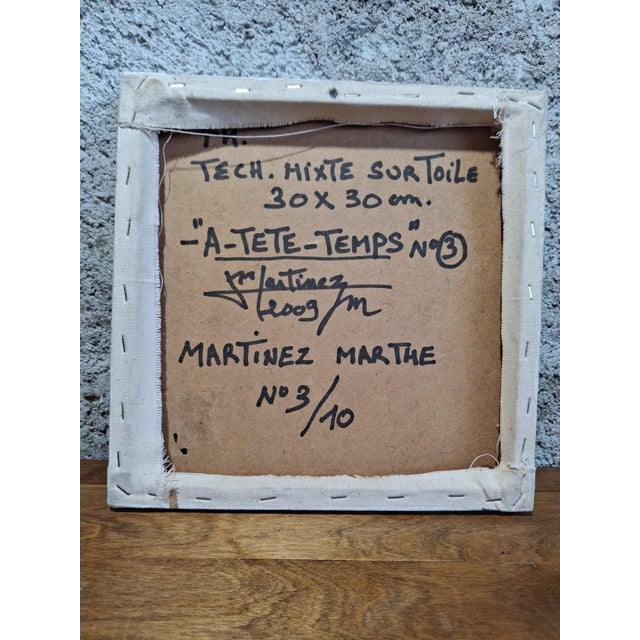 TECH. MIXTE SUR TOILE
30 X 30 cm.
-"A-TETE-TEMPS" N° 3
Martinez
2009
MARTINEZ MARTHE
N° 3/10